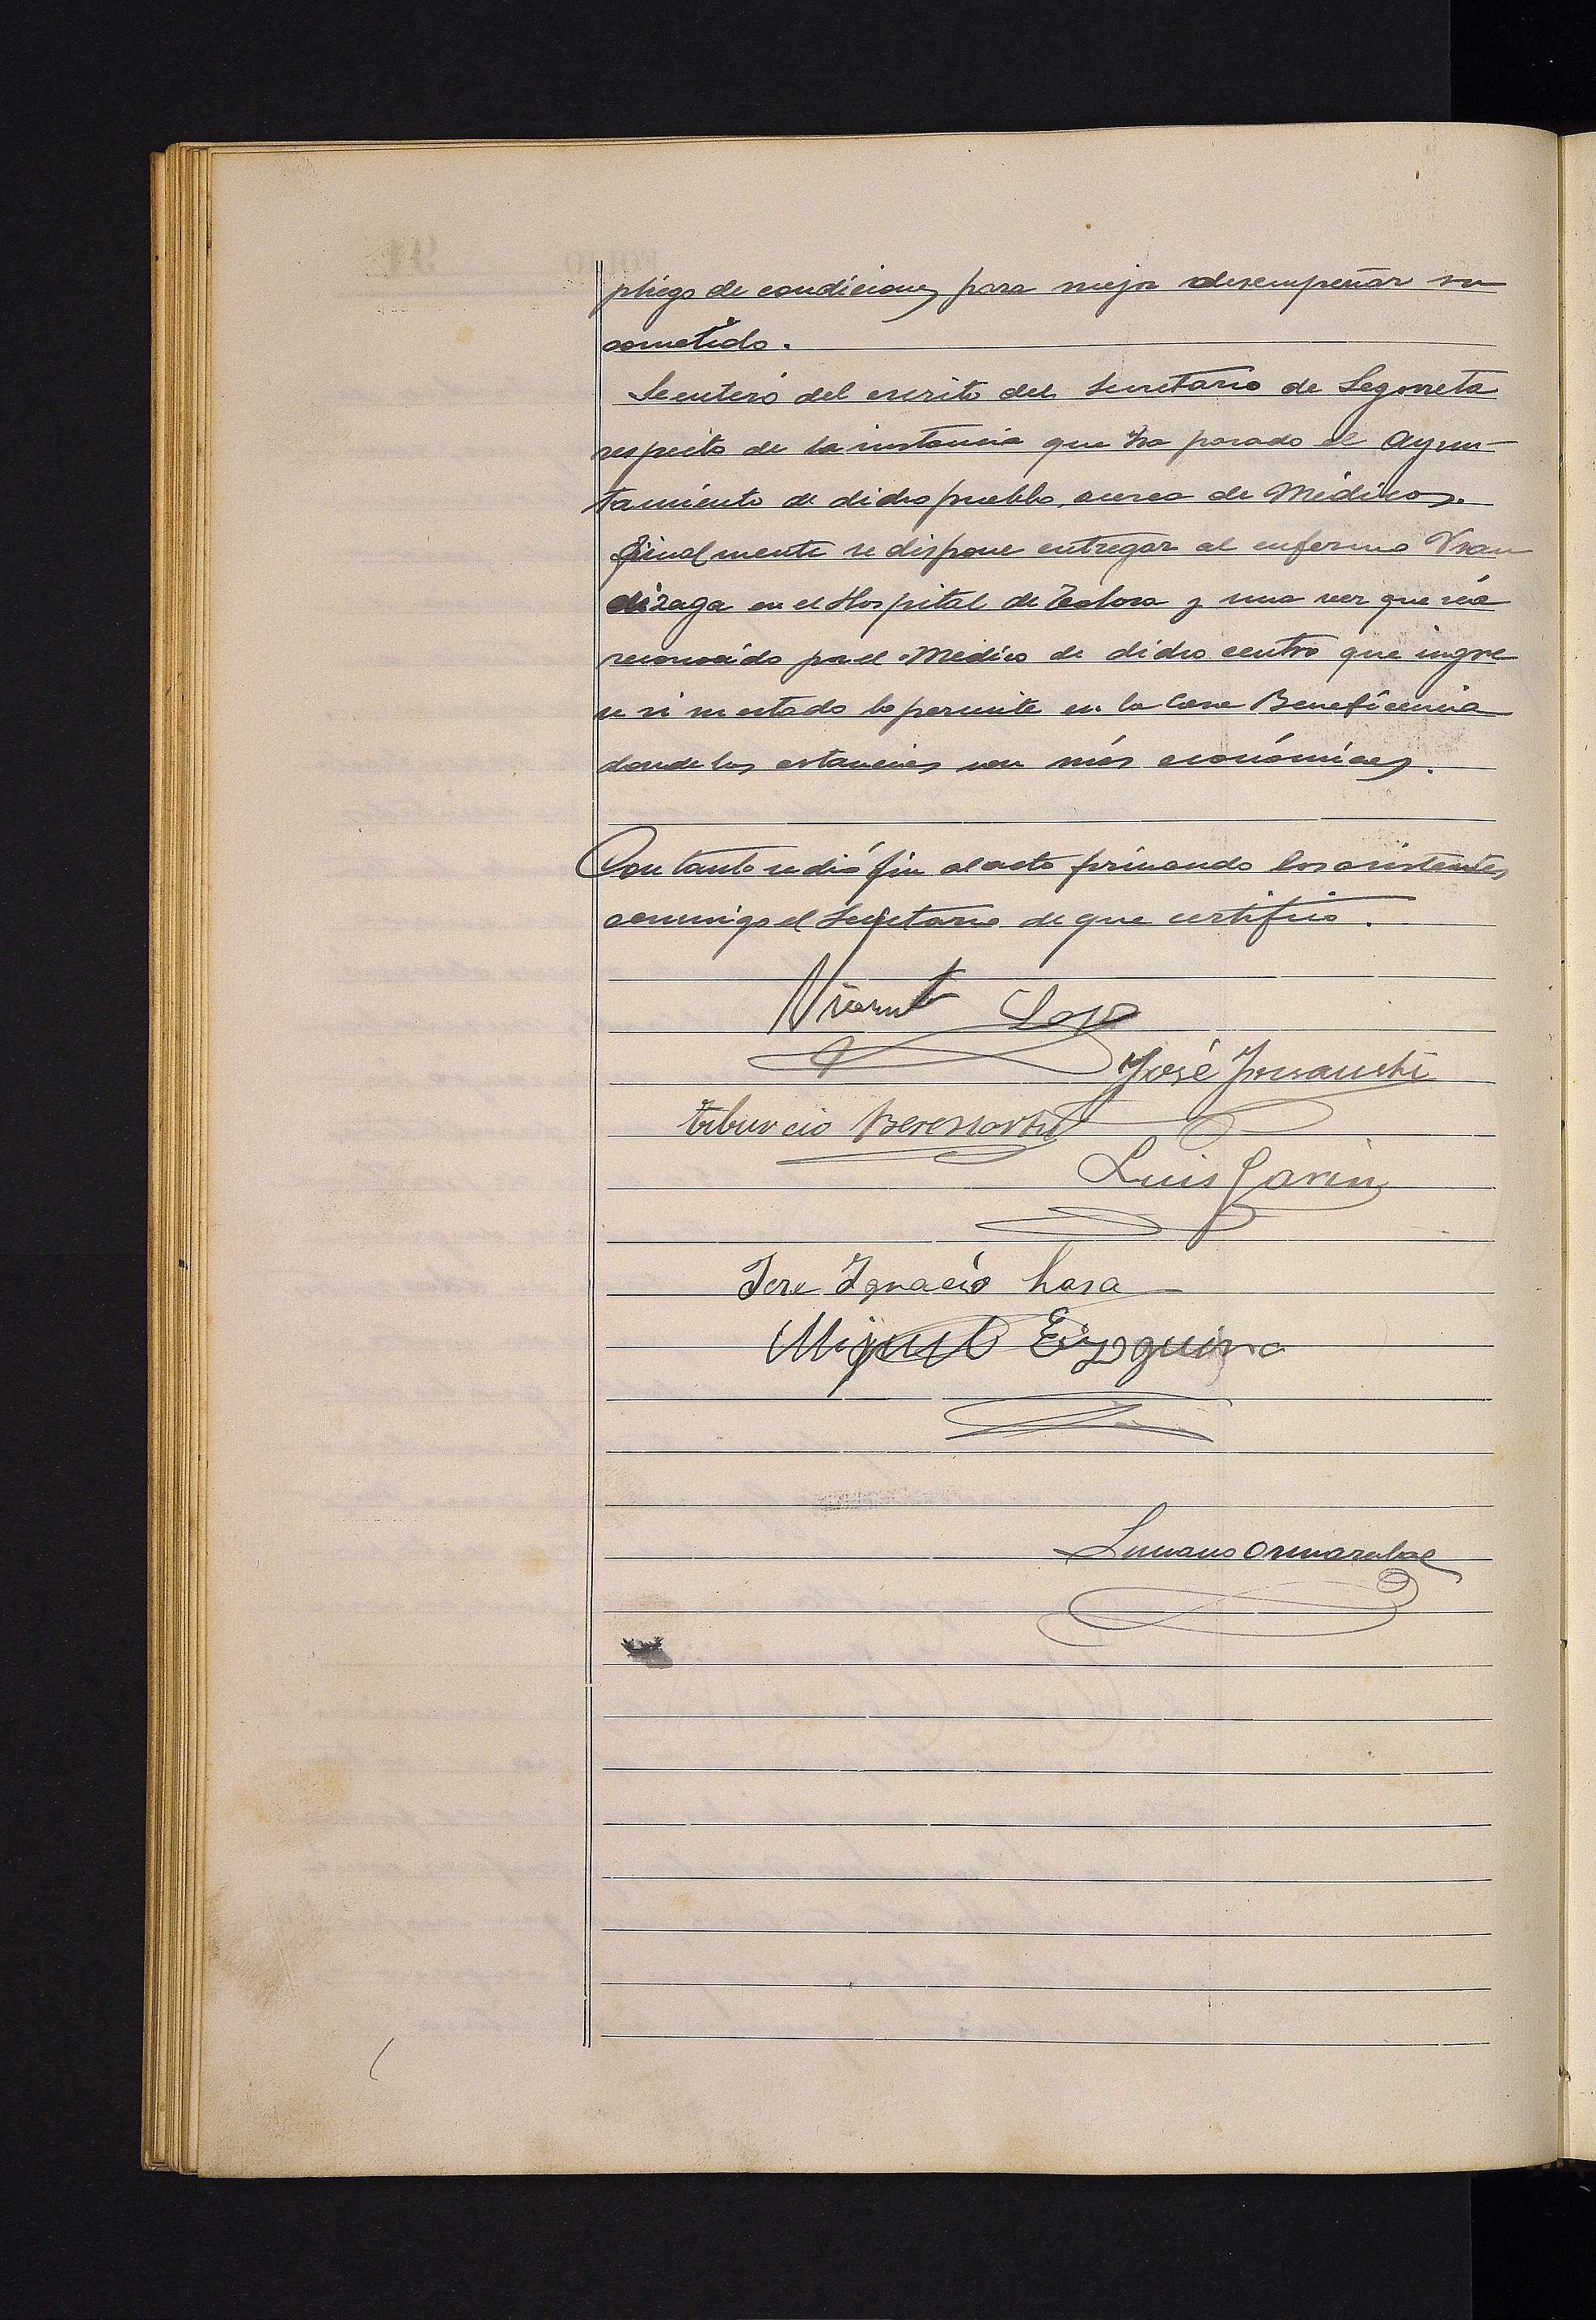 pliego de condiciones para mejor desempeñar su
cometido.
Se enteró del escrito del Secretario de Legorreta
respecto de la instancia que ha pasado el Ayun-
tamiento de dicho pueblo, acerca de Médicos.
Finalmente se dispone entregar al enfermo Vran
dizaga en el Hospital de Tolosa y una vez que sea
reconocido por el Médico de dicho centro que ingre
se si su estado lo permite en la Casa Beneficencia
donde las estancias son más económicas.
Con tanto se dió fin al acto firmando los asistentes
conmigo el Secretario de que certifico.
Vicente Lasa
José
Tiburcio Beresiartu
Luis Garin
Jose Ignacio Lasa
Miguel Eizaguirre
Luciano Ormazabal